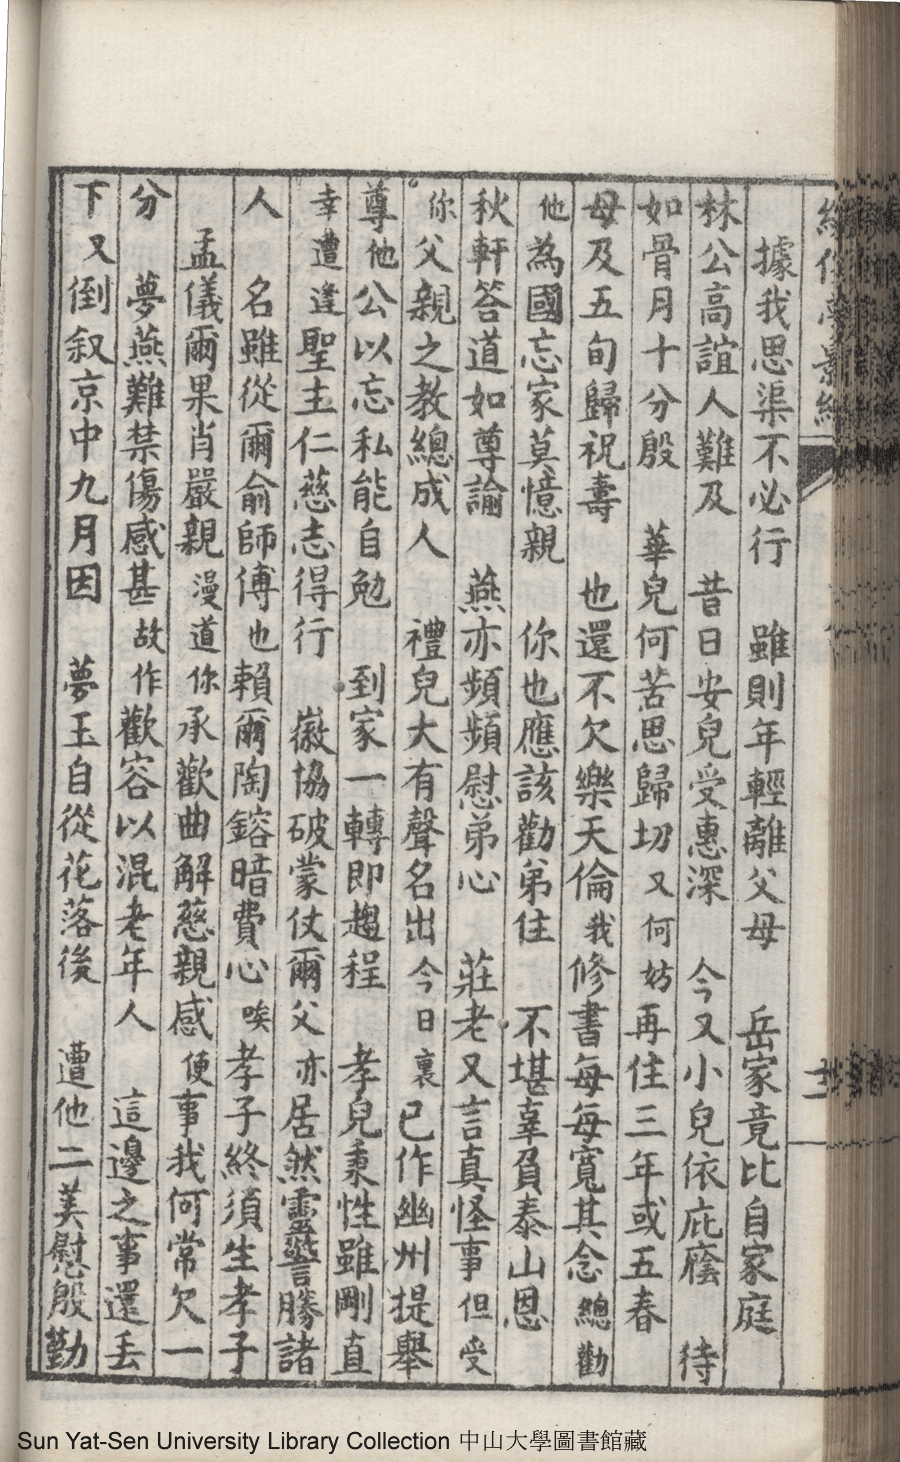 據我思渠不必行　雖則年輕離父母　岳家竟比自家庭
林公高誼人難及　昔日安兒受惠深　今又小兒依庇廕　待
如骨月十分殷　華兒何苦思歸切　又何妨再住三年或五春
母及五旬歸祝壽　也還不欠樂天倫　我修書每每寬其念　總勸
他為國忘家莫憶親　你也應該勸弟住　不堪辜負泰山恩
秋軒答道如尊諭　燕亦頻頻慰弟心　莊老又言真怪事　但受
你父親之教總成人　禮兒大有聲名出　今日裏已作幽州提舉
尊　他公以忘私能自勉　到家一轉即趨程　孝兒秉性雖剛直
幸遭逢聖主仁慈志得行　徽協破蒙仗爾父　亦居然靈警勝諸
人　名雖從爾俞師傅　也賴爾陶鎔暗費心　唉孝子終須生孝子
孟儀爾果肖嚴親　漫道你承歡曲解慈親感　便事我何常欠一
分　夢燕難禁傷感甚　故作歡容以混老年人　這邊之事還丟
下　又倒叙京中九月因　夢玉自從花落後　遭他二美慰殷勤
Sun Yat-Sen University Library Collection 中山大學圖書館藏